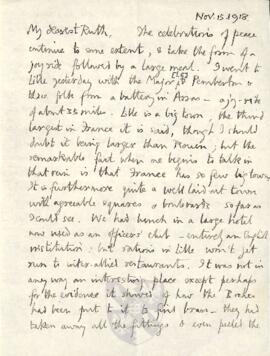 Nov. 15 1918.
My dearest Ruth, The celebrations of peace
continue to some extent, & take the form of a
joy ride followed by a large meal. I went to
Lille yesterday with the Major, Pemberton &
three folk from a battery in Arras - a joy-ride
of about 35 miles. Lille is a big town, the third
largest in France it is said, though I should
doubt it being larger than Rouen; but the
remarkable fact when one begins to take in
that vein is that France has so few big towns.
It is furthermore quite a well laid out town
with agreeable squares & boulevards so far as
I could see. We had lunch in a large hotel
now used as an officers' club - entirely an English
institution: but rations in Lille won't yet
run to inter-allied restaurants. It was not in
any way an interesting place except perhaps
for the evidence it showed of how the Boches
had been put to it to find brass - they had
taken away all the fittings & even peeled the